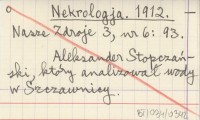 Nekrologja. 1912.
Nasze Zdroje 3, nr 6: 93.
Aleksander Stopczań-
ski, który analizował wody
w Szczawnicy.